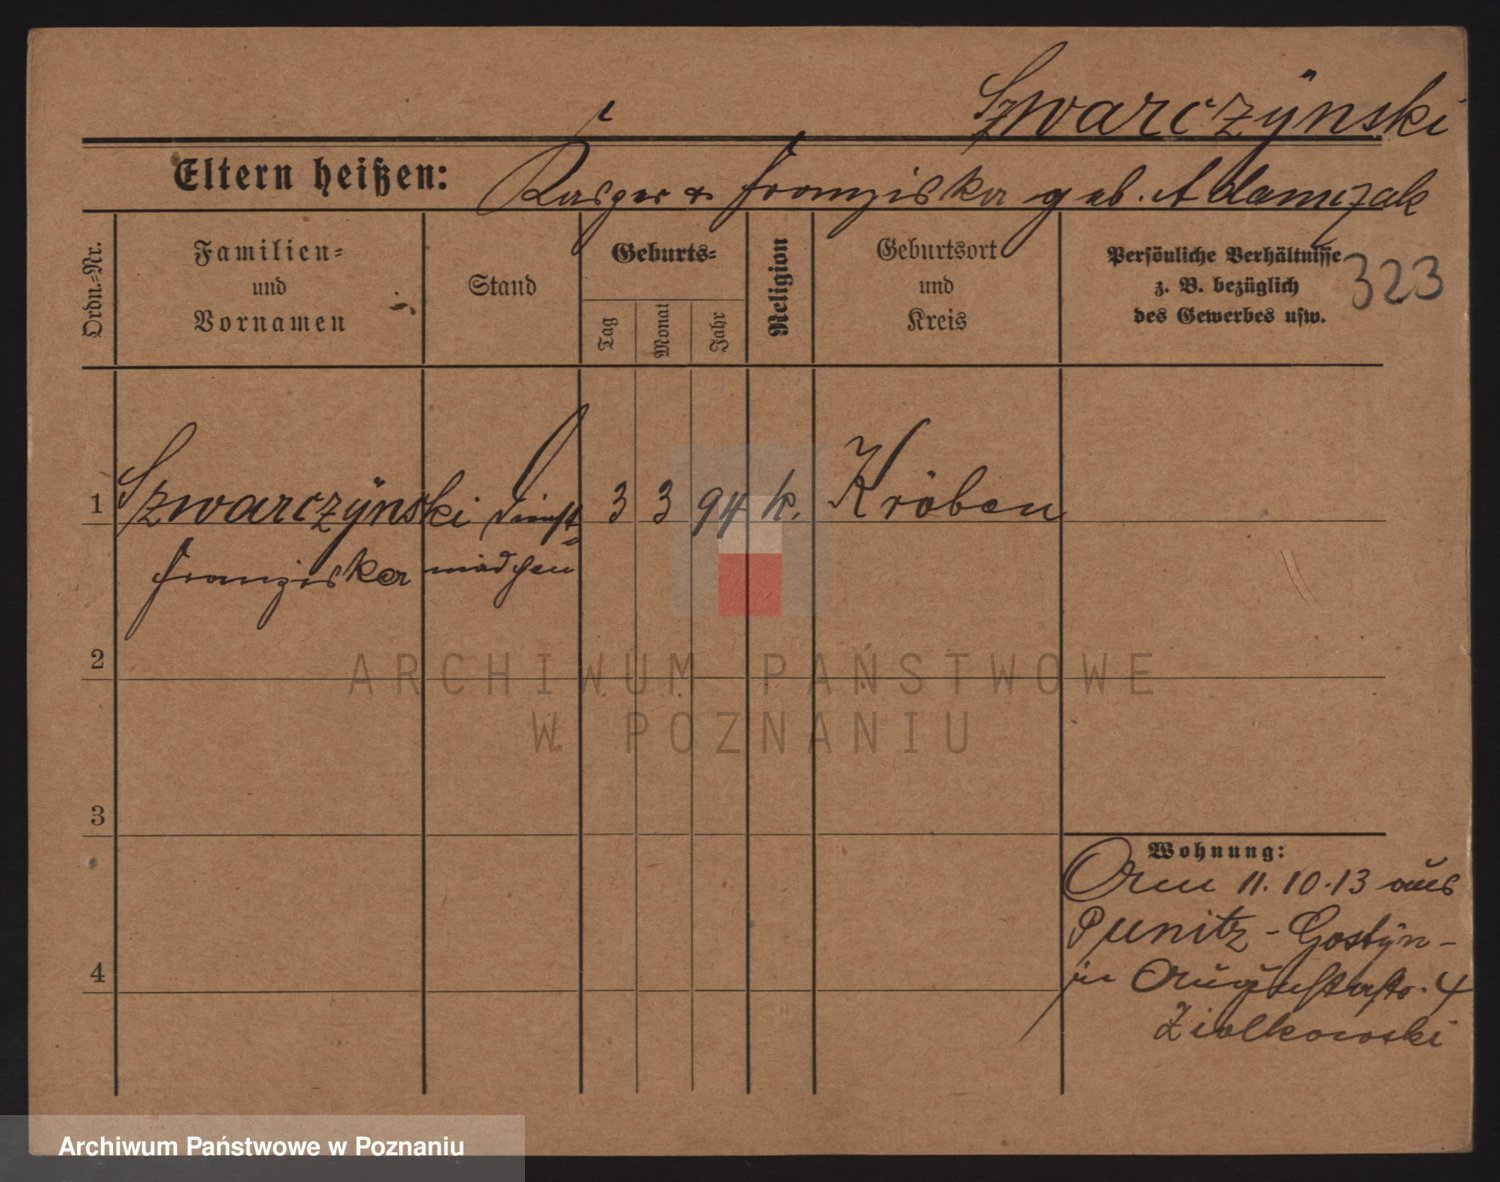 Szwarczÿnski
Eltern heißen: Kasper & Franziska geb. Adamczak
Ordn.-Nr.
Familien-
und
Vornamen
Stand
Geburts-
Tag
Monat
Jahr
Religion
Geburtsort
und
Kreis
Persönliche Verhältnisse
z. B. bezüglich
des Gewerbes usw.
323
1 Szwarczÿnski Dienst- 3 3 94 k. Kröben
Franziska mädchen
2
ARCHIWUM PAŃSTWOWE
W POZNANIU
3
Wohnung:
Am 11.10.13 aus
Punitz - Gostÿn -
in Augustastr. 4
4
Ziolkowski
Archiwum Państwowe w Poznaniu